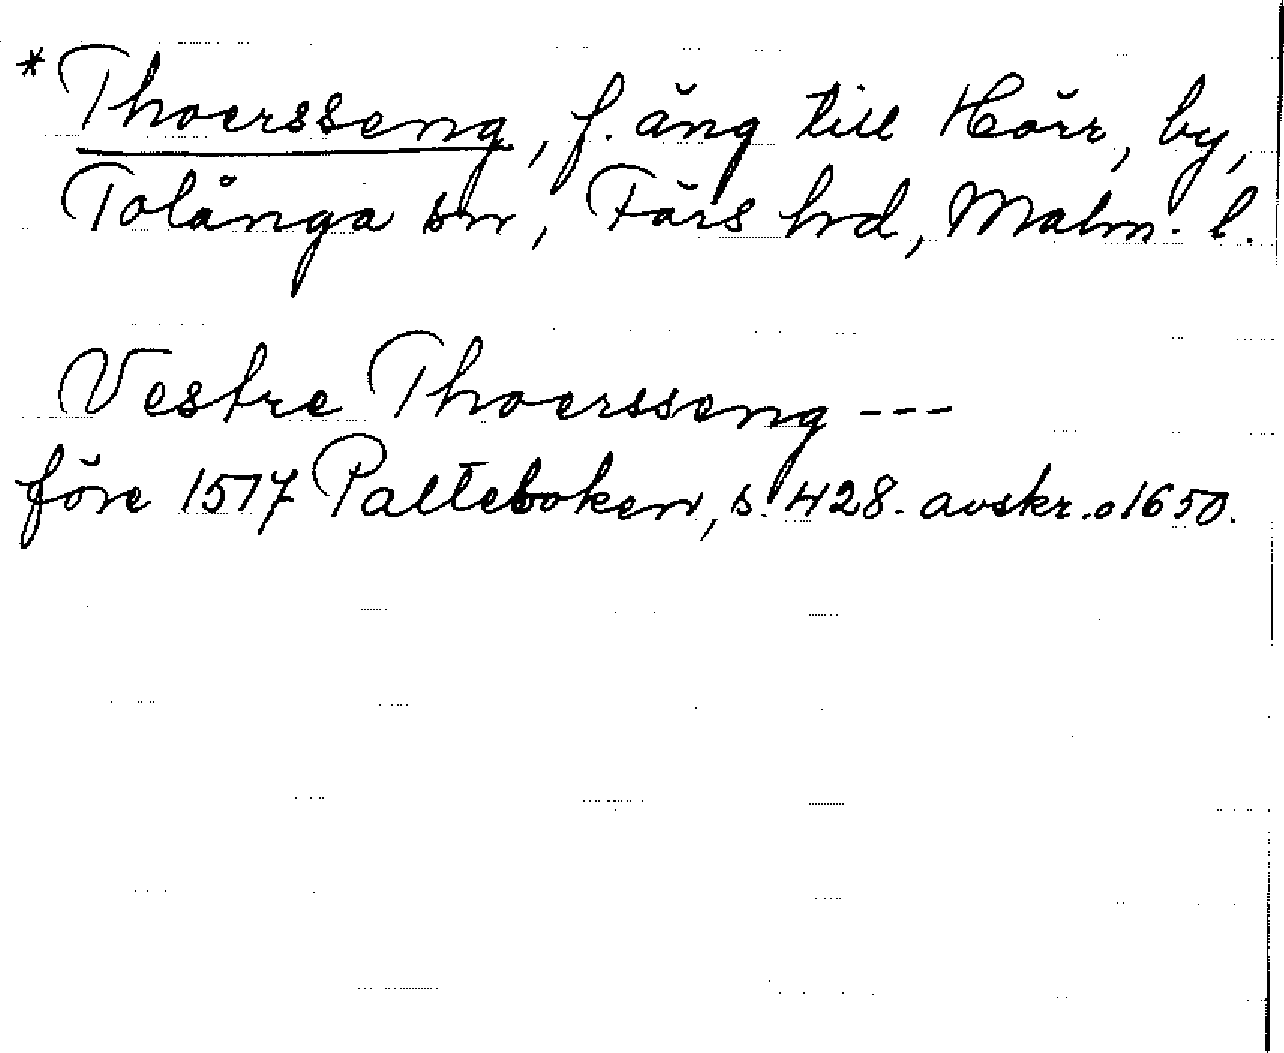 * Thoersseng, f. äng till Hörr, by,
Tolånga sn, Färs hd, Malm. l.
Vestre Thoersseng ---
före 1517 Palteboken, s. 428. avskr. o 1650.